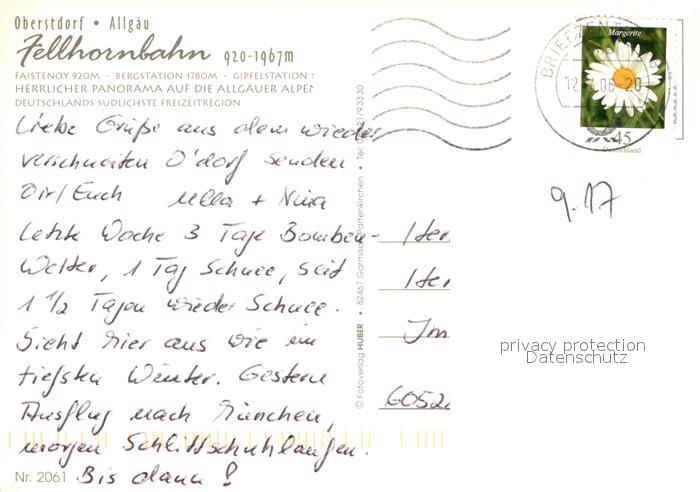 Oberstdorf • Allgäu
Fellhornbahn 920-1967m
FAISTENOY 920M • BERGSTATION 1780M • GIPFELSTATION
HERRLICHER PANORAMA AUF DIE ALLGÄUER ALPEN
DEUTSCHLANDS SÜDLICHSTE FREIZEITREGION
Liebe Grüße aus dem wieder
verschneiten O'dorf senden
Dir/Euch Ulla + Nina
Letzte Woche 3 Tage Bomben-
Wetter, 1 Tag Schnee, seit
1 1/2 Tagen wieder Schnee.
Sieht hier aus wie im
tiefsten Winter. Gestern
Ausflug nach München,
morgen Schlittschuhlaufen.
Bis dann!
Nr. 2061
© Fotoverlag HUBER • 82467 Garmisch-Partenkirchen • Tel.
BRIEFZENT
Margerite
45
Deutschland
9.17
Her
Her
Im
6052
privacy protection
Datenschutz